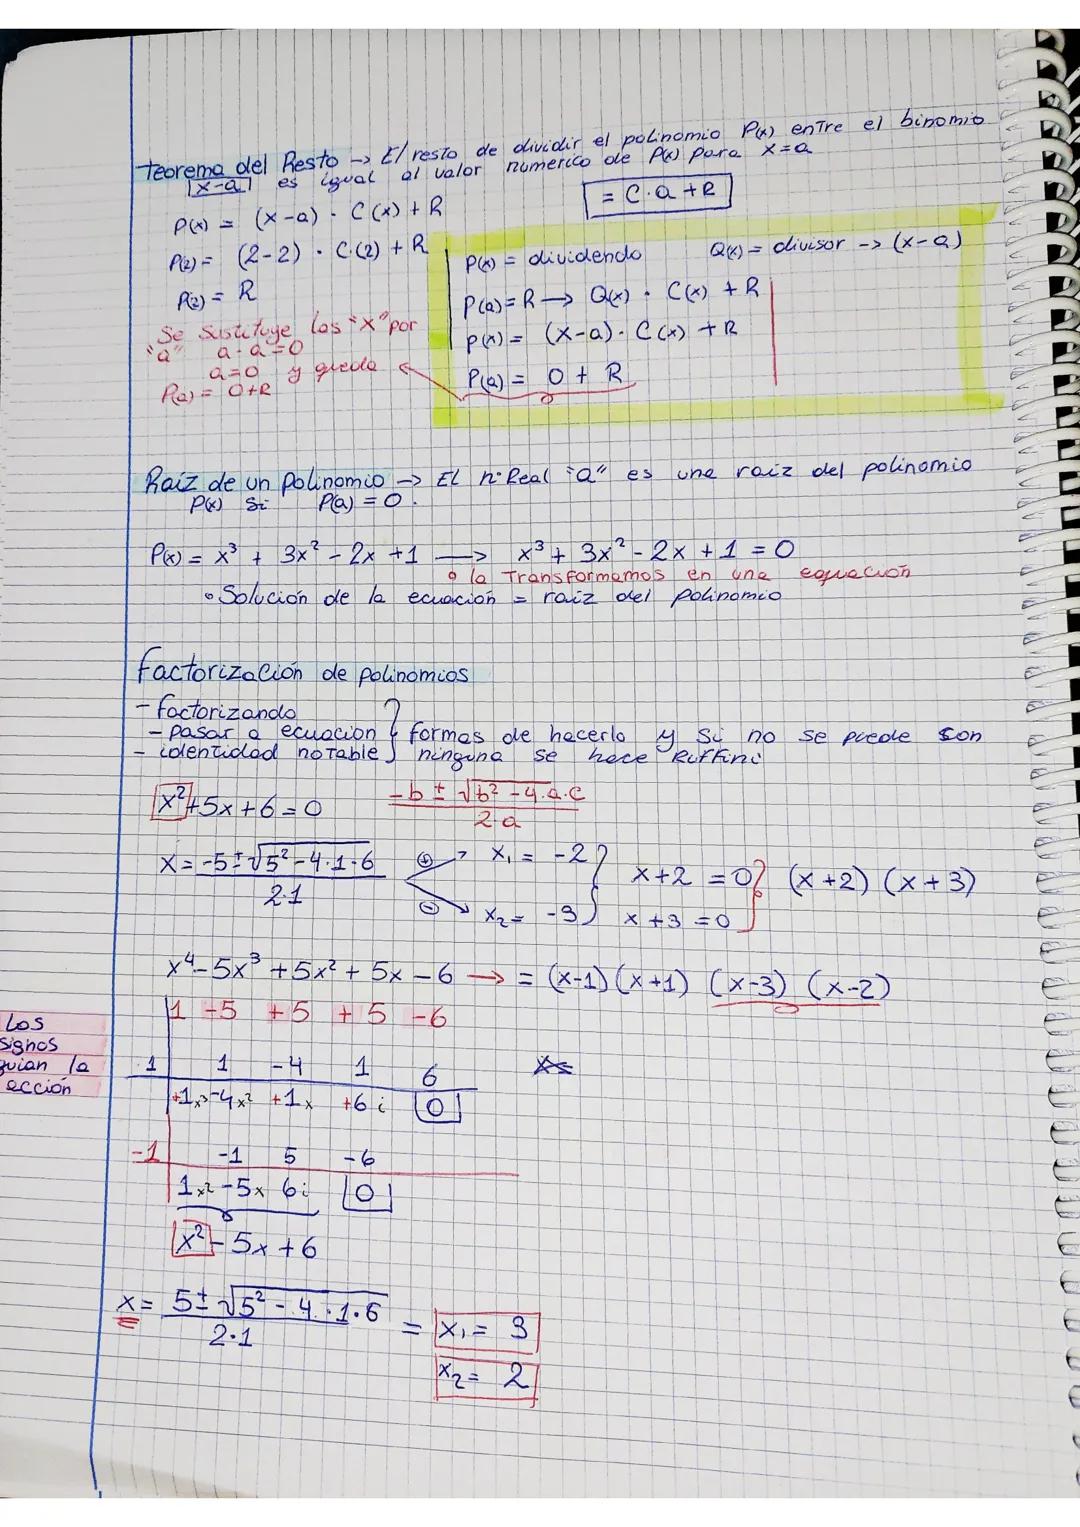 teorema del Resto -> El resto de dividir el polinomio P(x) entre el binomio
x-a es igual al valor numerico de P(x) para x=a
= C·a+R
P(x) = (x-a) · C(x) + R
P(2) = (2-2) · C(2) + R
P(2) = R
Se sustituye las "x" por
"a" a-a=0
a=0 y queda
P(a) = 0+R
P(x) = dividendo Q(x) = divisor -> (x-a)
P(a) = R → Q(x) · C(x) + R
P(x) = (x-a) · C(x) + R
P(a) = 0 + R
Raíz de un polinomio -> El nº Real "a" es una raiz del polinomio
P(x) si P(a) = 0.
P(x) = x³ + 3x² - 2x + 1 → x³ + 3x² - 2x + 1 = 0
• la transformamos en una equación
• Solución de la ecuación = raiz del polinomio
factorización de polinomios
- factorizando
- pasar a ecuacion } formas de hacerlo y si no se puede con
- identidad notable ninguna se hace Ruffini
x²+5x+6=0 -b ± √b²-4·a·c / 2·a
x = -5±√5²-4·1·6 / 2·1 ⊕ → x₁ = -2 } x+2 = 0 } (x+2) (x+3)
⊖ → x₂ = -3 } x+3 = 0
x⁴-5x³+5x²+5x-6 → = (x-1) (x+1) (x-3) (x-2)
1 -5 +5 +5 -6
Los
signos
guian la
ección
1 1 -4 1 6
+1x³-4x² +1x +6i 0
-1 -1 5 -6
1x² -5x 6i 0
x²-5x+6
x = 5±√5²-4·1·6 / 2·1 = x₁ = 3
x₂ = 2